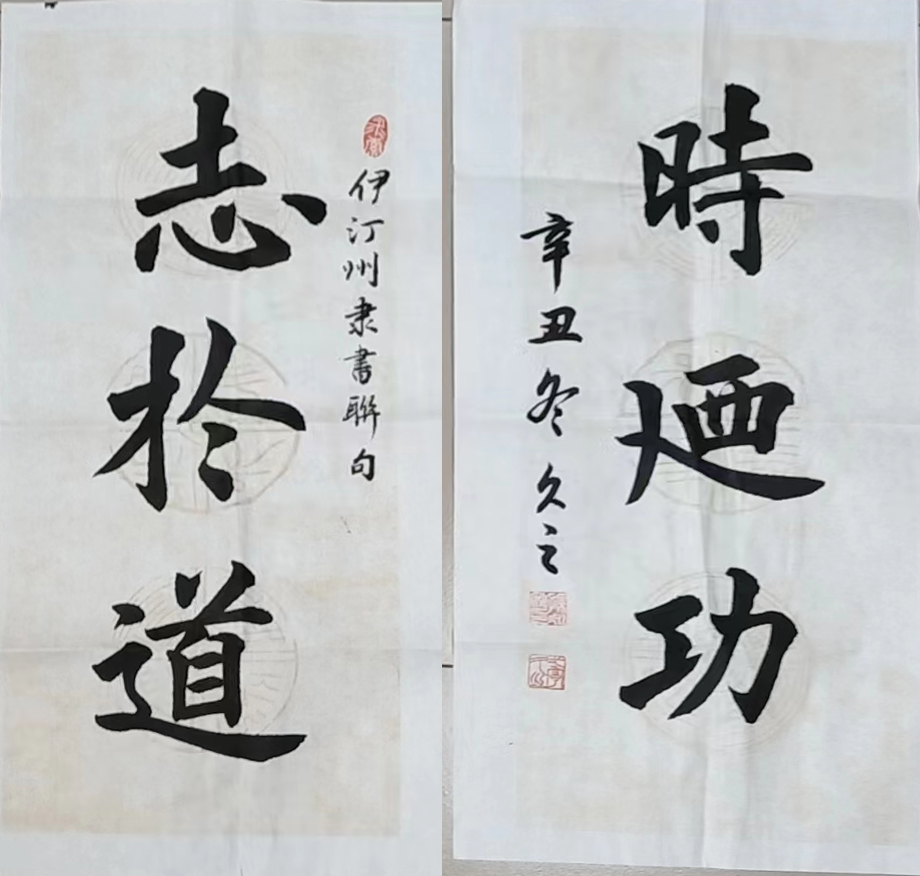 伊汀州隶書聯句
志於道
時廼功
辛丑冬久之